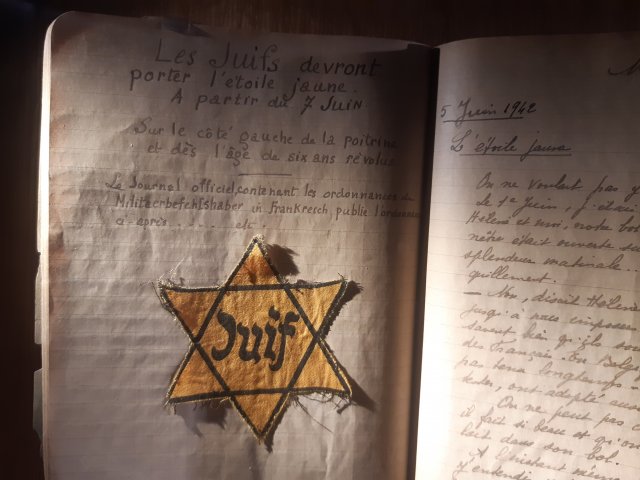 Les Juifs devront
porter l'étoile jaune.
A partir du 7 Juin
Sur le côté gauche de la poitrine
et dès l'âge de six ans révolus
Le Journal officiel, contenant les ordonnances du
Militaerbefehlshaber in Frankreich, publie l'ordonnance
ci-après
Juif
5 Juin 1942
L'étoile jaune
On ne voulait pas y
Le 1er Juin, j'étais
Hélène et moi, notre
nêtre était ouverte
splendeur matinale...
quillement.
— Non, disait Hélène
jusqu'à nous imposer
savent bien qu'ils
des Français. En Belgi
pas tenu longtemps
ont adopté
On ne peut pas
il fait si beau et qu'on
lait dans son bol.
A l'instant même
J'entendis